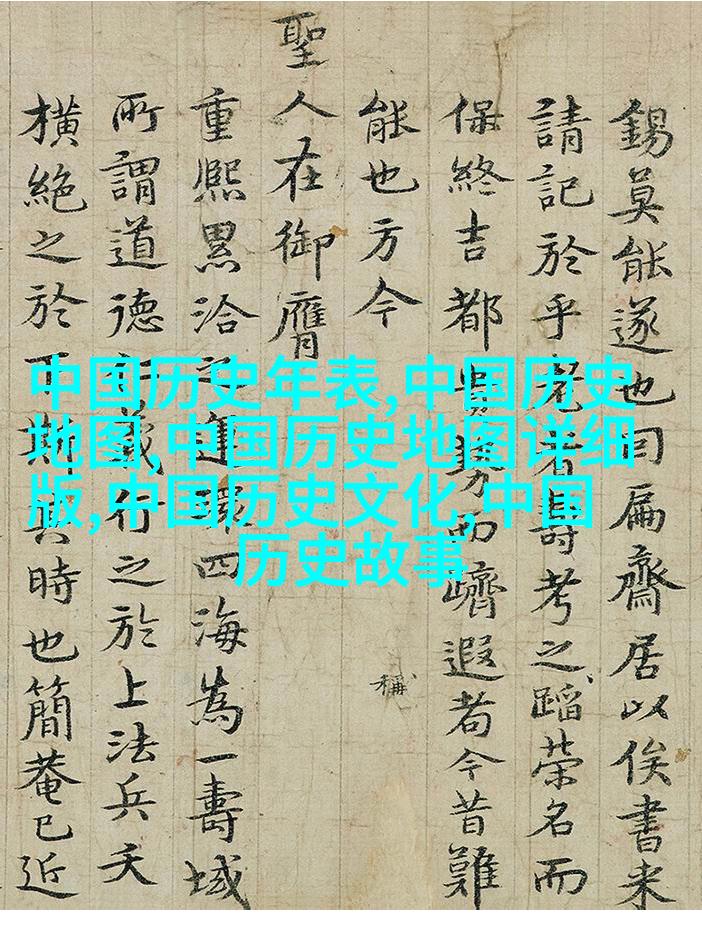 錫莫能遂也曰扁齋居以俟書来
請記於乎老者壽考之蹈榮名而
保終吉都勢而躋遐耈今昔難
能也方今
稱
聖人在御膺
重熈累洽之四海為一壽域
所謂道德義行之於上法兵夭
橫絶之於下斯其時也簡菴已近
中国历史年表,中国历史
地图,中国历史地图详细
版,中国历史文化,中国
历史故事